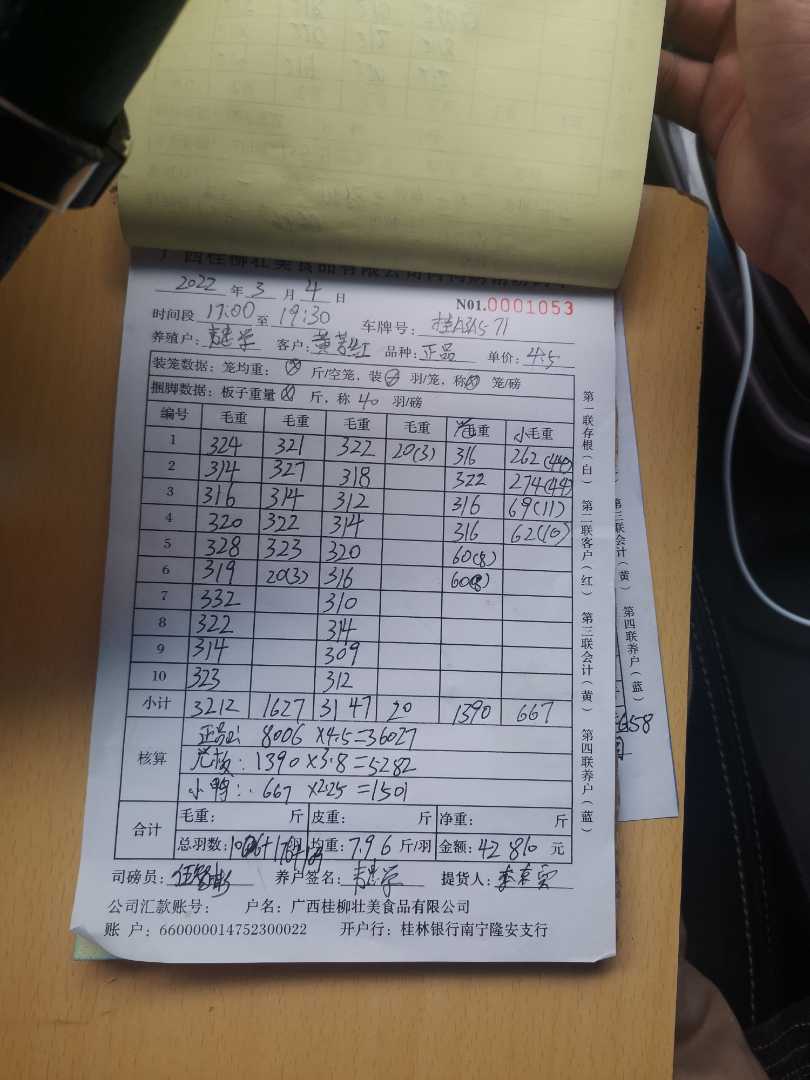 2022 年 3 月 4 日
N01.0001053
时间段 17:00 至 19:30 车牌号:
养殖户: 客户: 品种: 正品 单价: 4.5
装笼数据: 笼均重: 斤/空笼, 装 羽/笼, 称 笼/磅
捆脚数据: 板子重量 斤, 称 40 羽/磅
编号 毛重 毛重 毛重 毛重 毛重 小毛重
1 324 321 322 20(3) 316 262(44)
2 314 327 318 322 274(44)
3 316 314 312 316 69(11)
4 320 322 314 316 62(10)
5 328 323 320 60(8)
6 319 20(3) 316 60(8)
7 332 310
8 322 314
9 314 309
10 323 312
小计 3212 1627 3147 20 1390 667
核算 正品: 8006 ×4.5=36027
1390×3.8=5282
小鸭: 667 ×2.25 =1501
合计 毛重: 斤 皮重: 斤 净重: 斤
总羽数: 羽 均重: 7.96 斤/羽 金额: 42810 元
司磅员: 养户签名: 提货人:
公司汇款账号: 户名: 广西桂柳壮美食品有限公司
账 户: 660000014752300022 开户行: 桂林银行南宁隆安支行
第一联存根(白) 第二联客户(红) 第三联会计(黄) 第四联养户(蓝)
第三联会计(黄) 第四联养户(蓝)